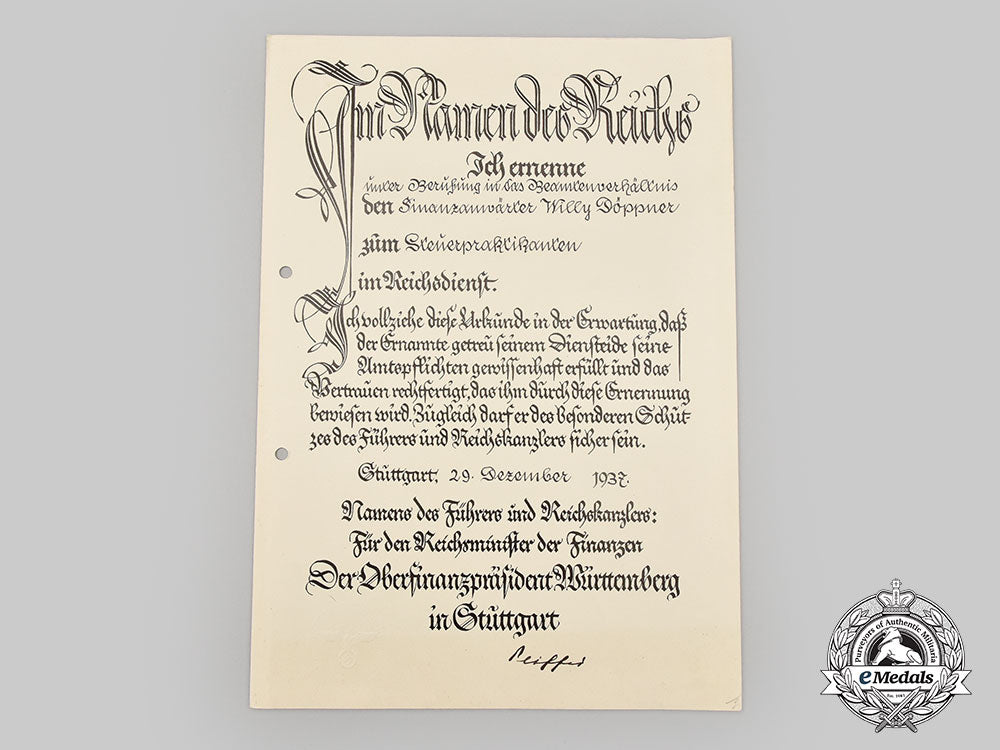 Im Namen des Reichs
Ich ernenne
unter Berufung in das Beamtenverhältnis
den Finanzanwärter Willy Döppner
zum Steuerpraktikanten
im Reichsdienst.
Ich vollziehe diese Urkunde in der Erwartung, daß
der Ernannte getreu seinem Diensteide seine
Amtspflichten gewissenhaft erfüllt und das
Vertrauen rechtfertigt, das ihm durch diese Ernennung
bewiesen wird. Zugleich darf er des besonderen Schut-
zes des Führers und Reichskanzlers sicher sein.
Stuttgart, 29. Dezember 1937.
Namens des Führers und Reichskanzlers:
Für den Reichsminister der Finanzen
Der Oberfinanzpräsident Württemberg
in Stuttgart
Purveyors of Authentic Militaria
eMedals